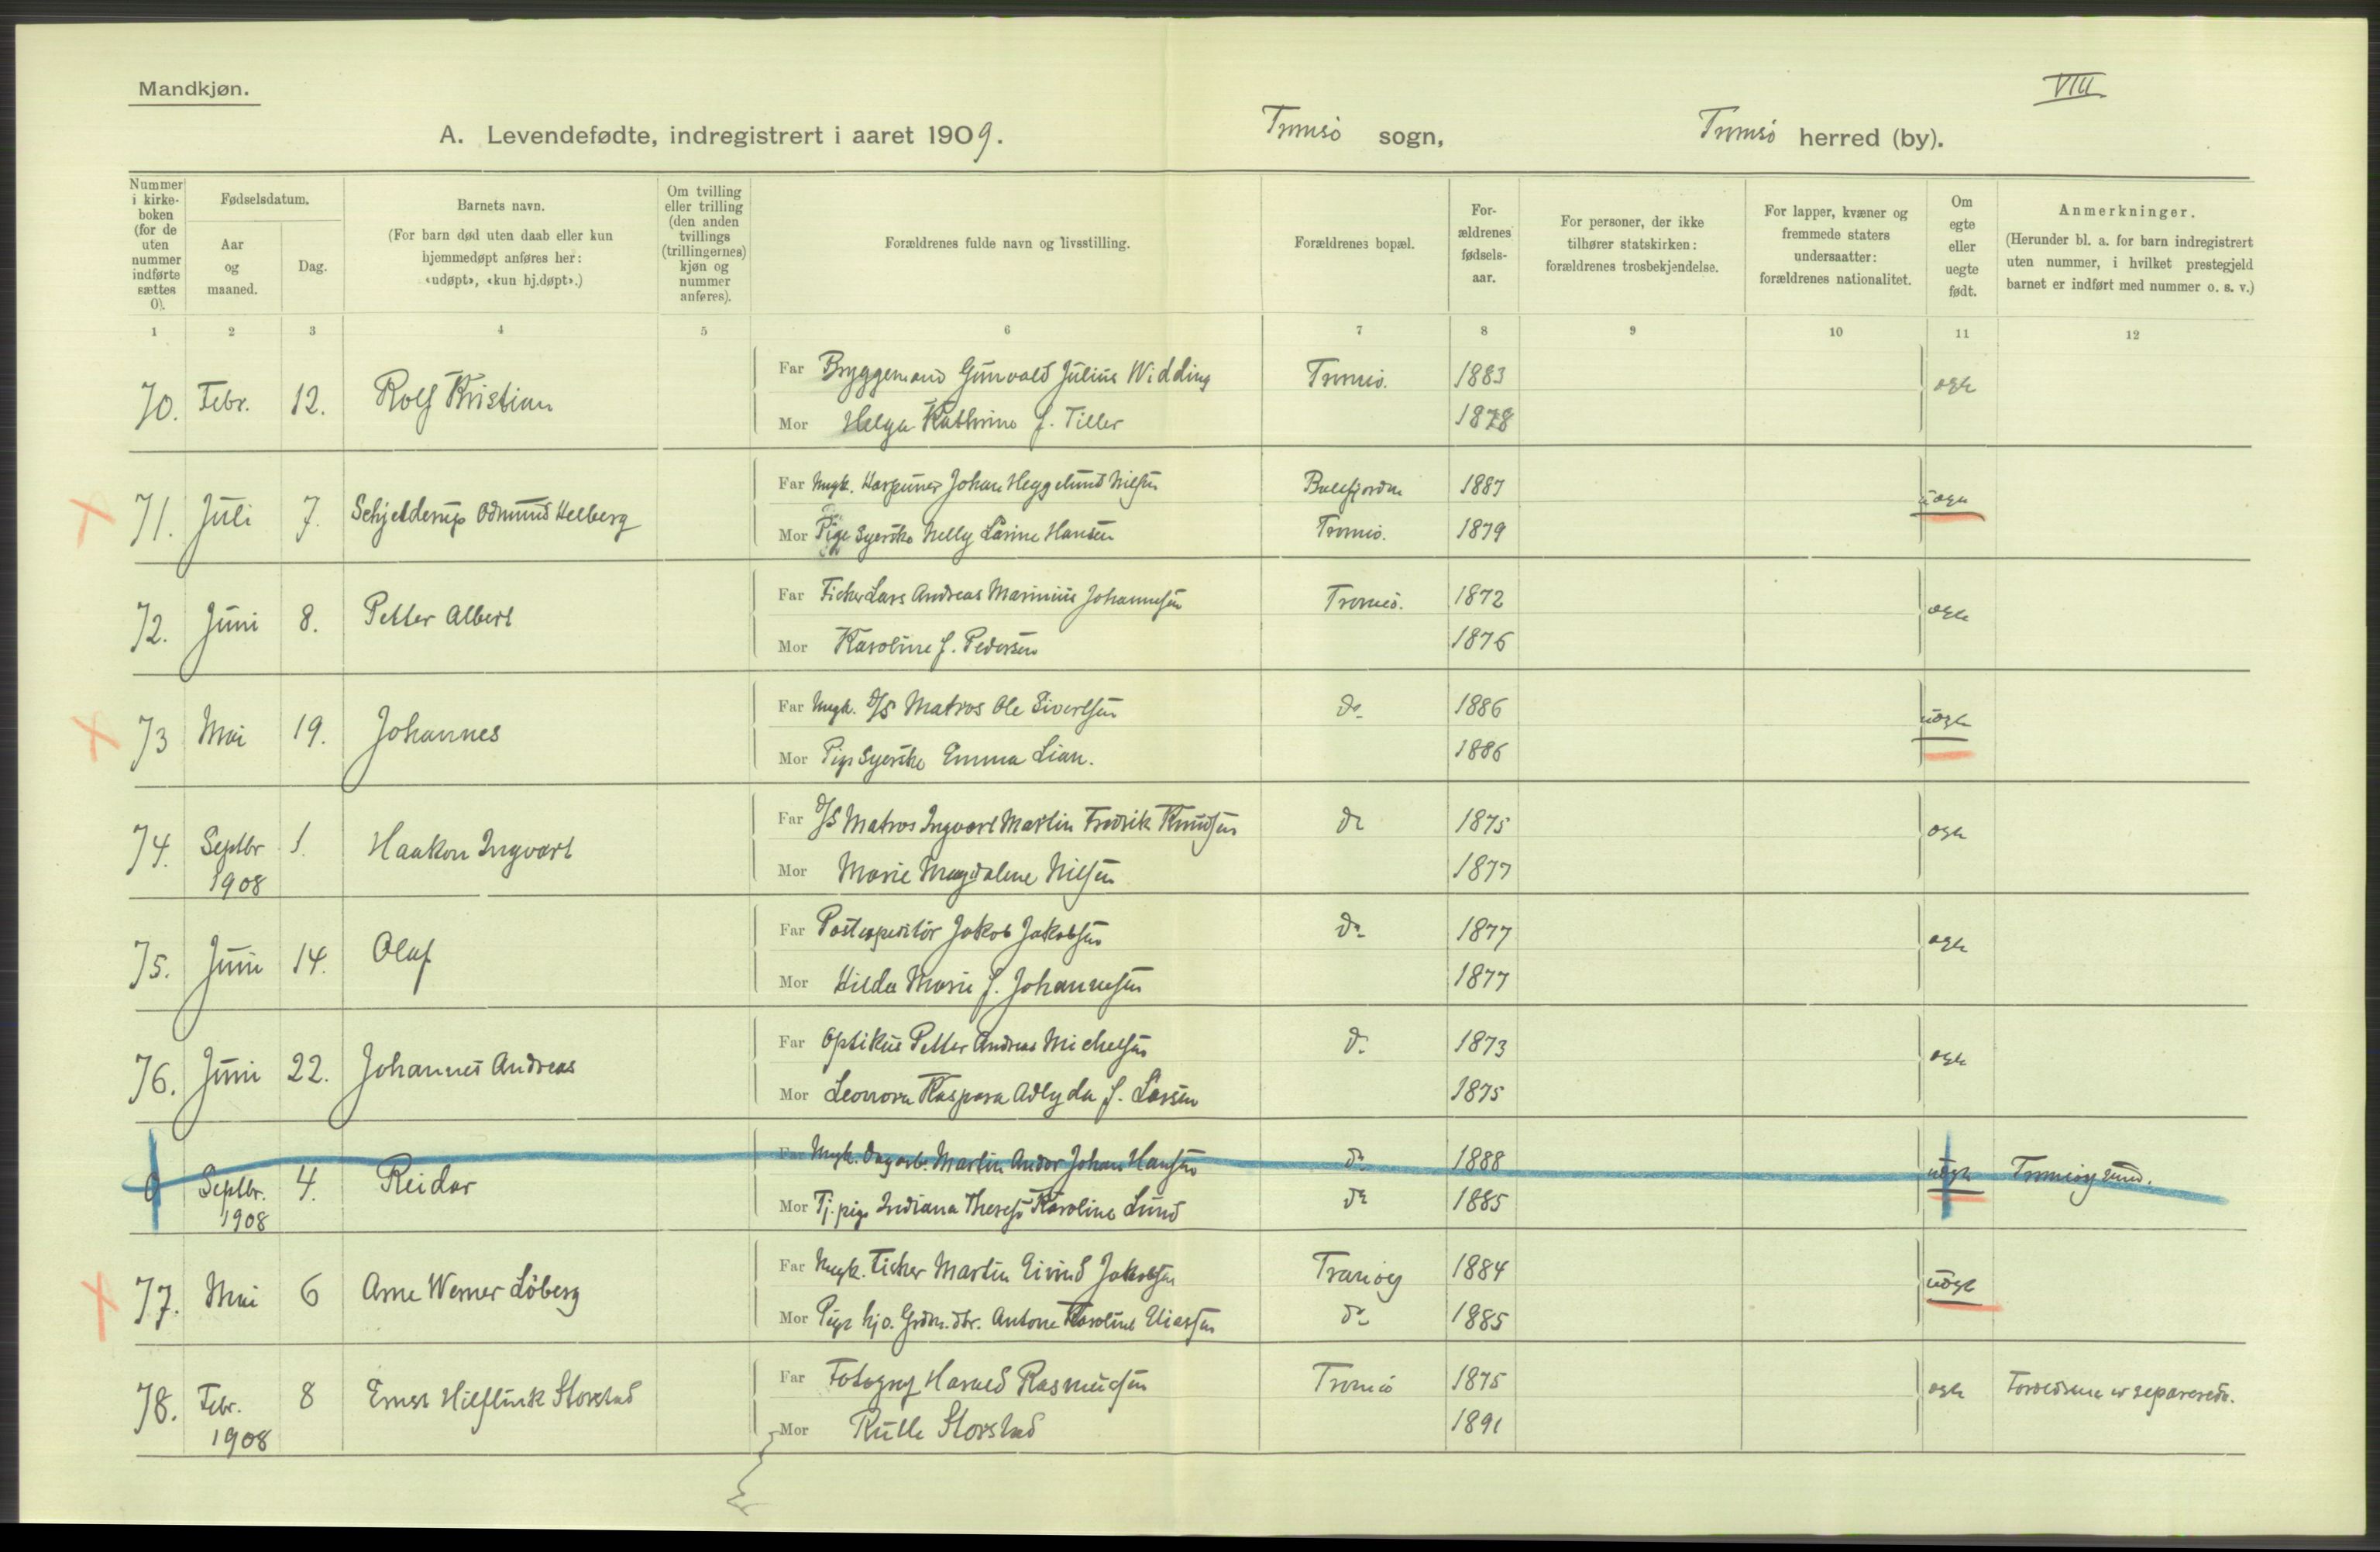 Mandkjøn.
VIII
A. Levendefødte, indregistrert i aaret 1909.
Tromsø sogn,
Tromsø herred (by).
Nummer i kirke-boken (for de uten nummer indførte sættes 0).
Fødselsdatum.
Aar og maaned.
Dag.
Barnets navn.
(For barn død uten daab eller kun hjemmedøpt anføres her: «udøpt», «kun hj.døpt».)
Om tvilling eller trilling (den anden tvillings (trillingernes) kjøn og nummer anføres).
Forældrenes fulde navn og livsstilling.
Forældrenes bopæl.
For-ældrenes fødsels-aar.
For personer, der ikke tilhører statskirken: forældrenes trosbekjendelse.
For lapper, kvæner og fremmede staters undersaatter: forældrenes nationalitet.
Om egte eller uegte født.
Anmerkninger.
(Herunder bl. a. for barn indregistrert uten nummer, i hvilket prestegjeld barnet er indført med nummer o. s. v.)
1 2 3 4 5 6 7 8 9 10 11 12
70. Febr. 12. Rolf Kristian
Far Bryggemand Gunvald Julius Widding Tromsø. 1883 egte
Mor Helga Kathrine f. Tiller 1878
71. Juli 7. Schjelderup Odmund Helberg
Far Ungk. Harpuner Johan Heggelund Nilsen Balsfjorden 1887 uegte
Mor Pige Syerske Nelly Larine Hansen Tromsø. 1879
72. Juni 8. Petter Albert
Far Fisker Lars Andreas Marinius Johannesen Tromsø. 1872 egte
Mor Karoline f. Pedersen 1876
73 Mai 19. Johannes
Far Ungk. D/S Matros Ole Sivertsen do 1886 uegte
Mor Pige Syerske Emma Lian. 1886
74. Septbr 1908 1. Haakon Ingvart
Far D/S Matros Ingvart Martin Fredrik Knudsen do 1875 egte
Mor Marie Magdalene Nilsen 1877
75. Juni 14. Olaf
Far Postexpeditør Jakob Jakobsen do 1877 egte
Mor Hilda Marie f. Johannesen 1877
76. Juni 22. Johannes Andreas
Far Optikus Petter Andreas Michelsen do 1873 egte
Mor Leonora Kaspara Adlyda f. Larsen 1875
0 Septbr. 1908 4. Reidar
Far Ungk. Dagarb. Martin Andor Johan Hansen do 1888 uegte Tromsøysund.
Mor Tj. pige Indiana Therese Karoline Lund do 1885
77. Mai 6 Arne Werner Løberg
Far Ungk. Fisker Martin Eivind Jakobsen Tranøy 1884 uegte
Mor Pige hjv. Grdm. dtr. Antone Karoline Eliassen do 1885
78. Febr. 1908 8 Ernst Hilflink Storstad
Far Fotograf Harald Rasmussen Tromsø 1875 egte Forældrene er separerede.
Mor Ruth Storstad 1891